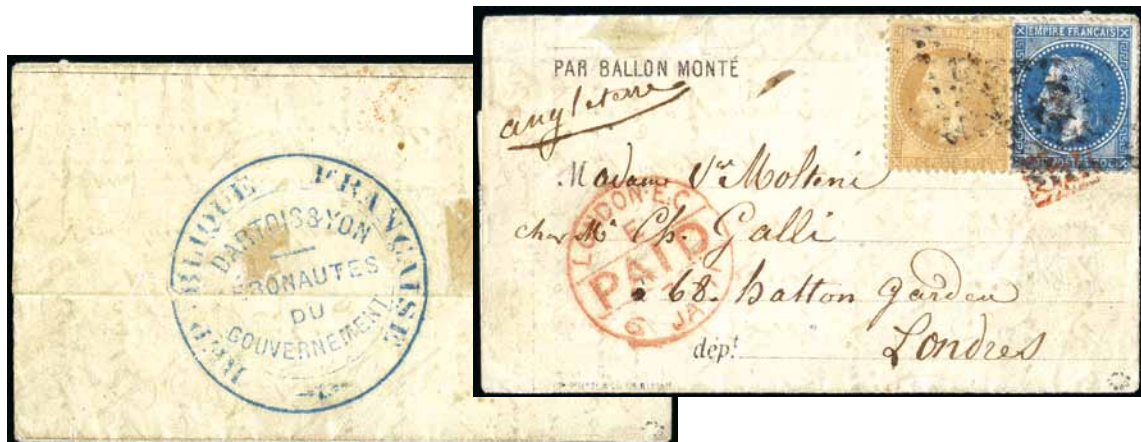 RÉPUBLIQUE FRANÇAISE
DARTOIS & YON
AÉRONAUTES
DU
GOUVERNEMENT
PAR BALLON MONTÉ
angleterre
EMPIRE FRANÇAIS
Madame Vve Molteni
chez Mr Ch. Galli
à 68. hatton garden
dépt. Londres
LONDON-E.C
PAID
6 JA